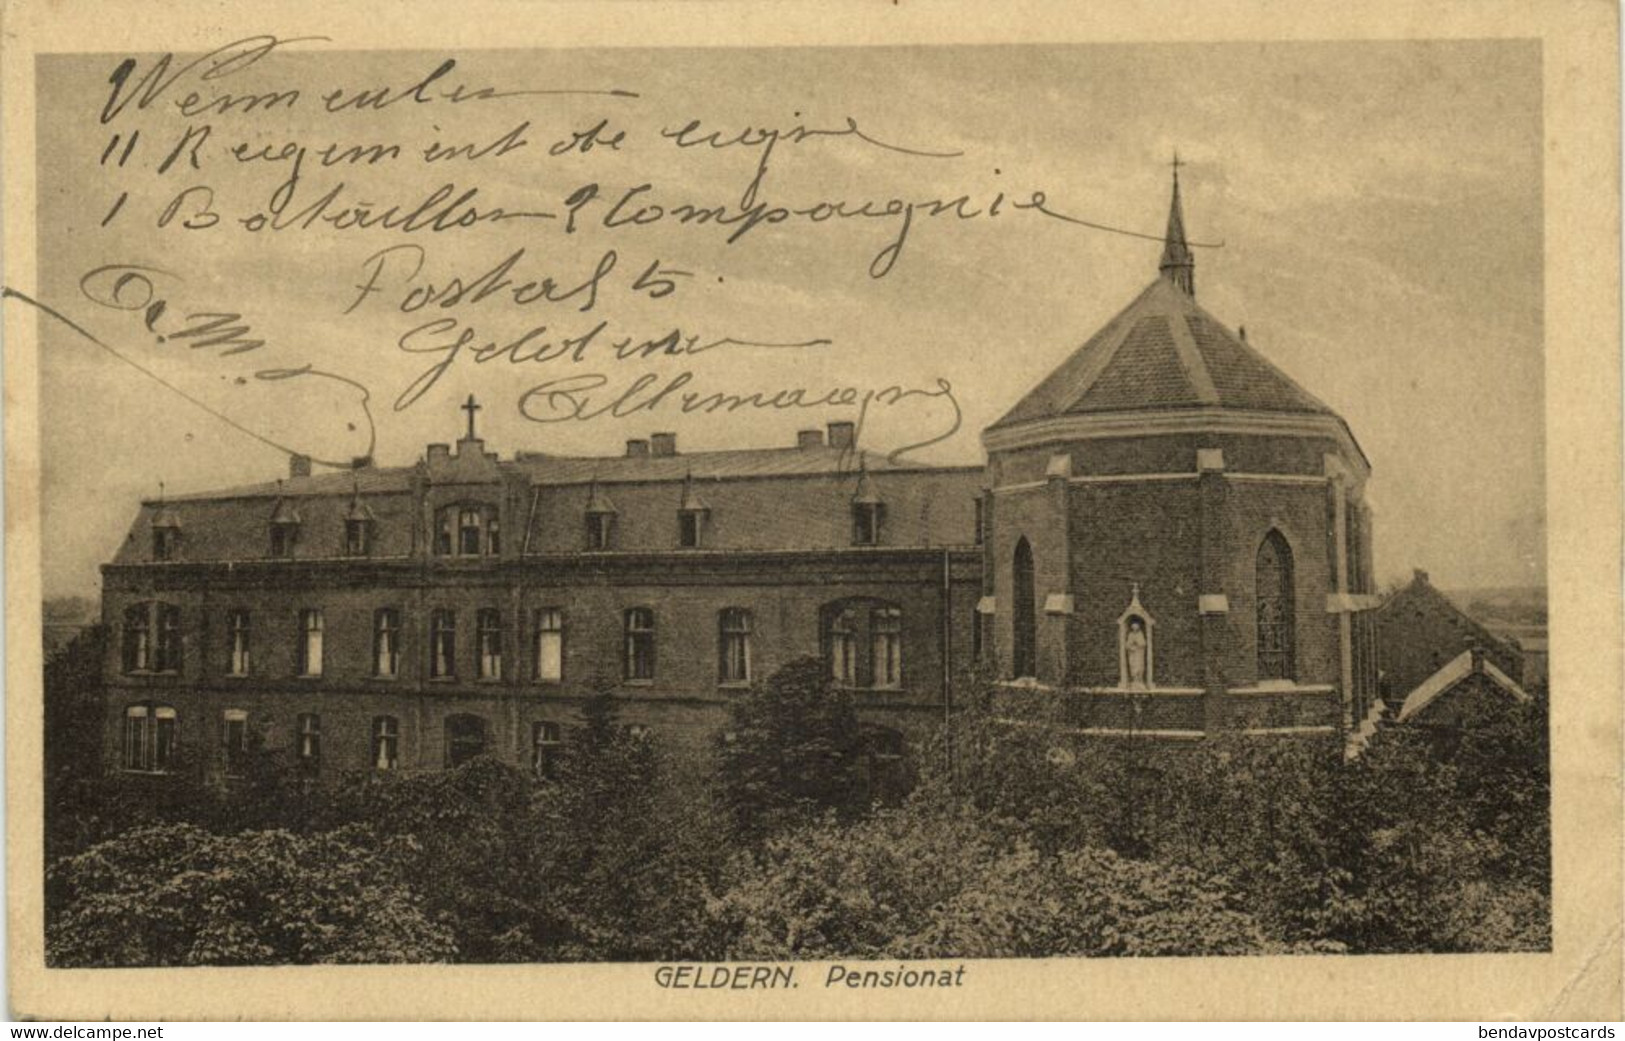 Wermeulen
11 Regiment de ligne
1 Bataillon 2 Compagnie
Postal 5
A.M.
Geldern
Allemagne
GELDERN. Pensionat
www.delcampe.net
bendavpostcards